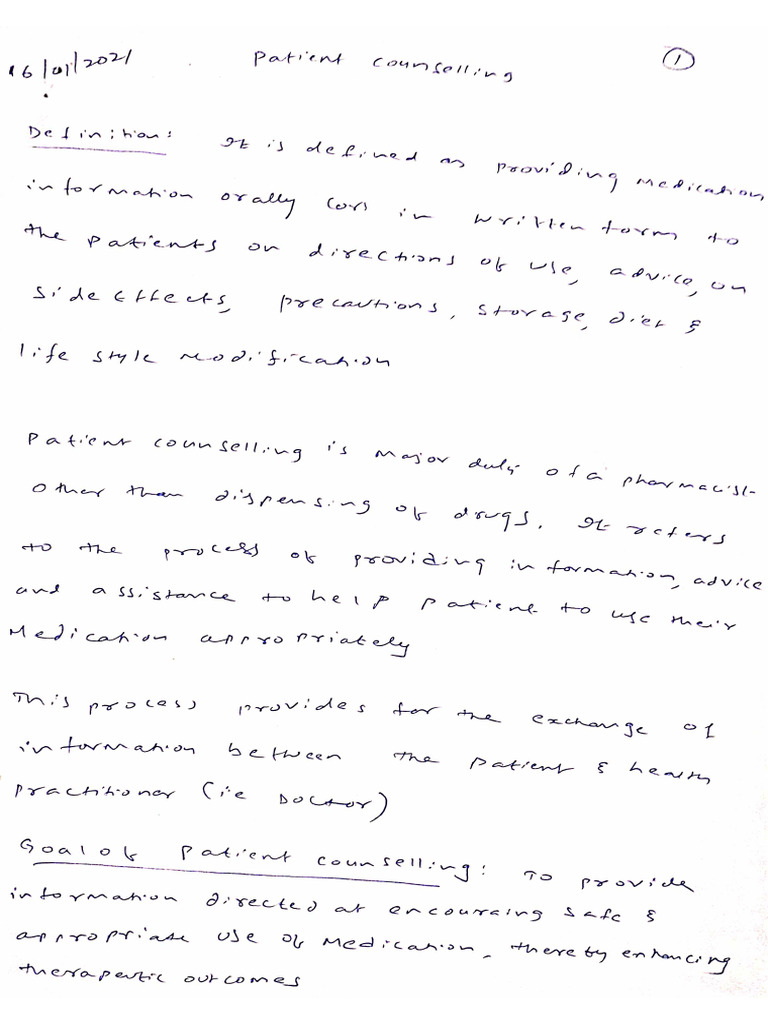 16/01/2021 Patient counselling 1
Definition: It is defined as providing medication
information orally (or) in written form to
the patients on directions of use, advice, on
side effects, precautions, storage, diet &
life style modification
Patient counselling is major duty of a pharmacist
other than dispensing of drugs. It refers
to the process of providing information, advice
and assistance to help patient to use their
Medication appropriately
This process provides for the exchange of
information between the patient & health
practitioner (ie Doctor)
Goal of patient counselling: To provide
information directed at encouraing safe &
appropriate use of medication, thereby enhancing
therapeutic outcomes